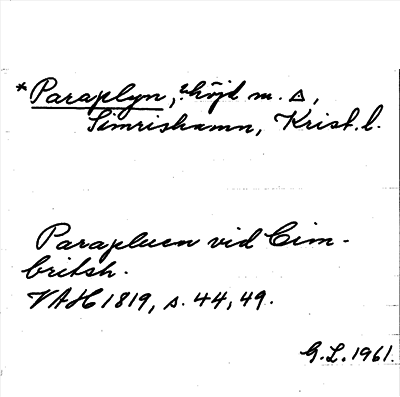 *Paraplyn, ?höjd m. △,
Simrishamn, Krist. l.
Parapluen vid Cim-
britsh.
VAH 1819, s. 44, 49.
G.L. 1961.